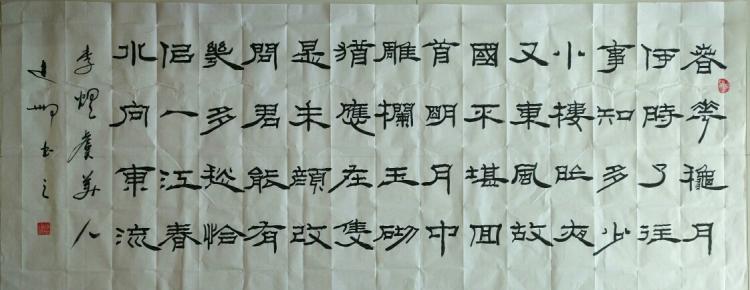 春花龝月
何時了往
事知多少
小樓昨夜
又東風故
國不堪回
首明月中
雕欄玉砌
猶應在隻
是朱顏改
問君能有
幾多愁恰
佀一江春
水向東流
李煜虞美人
书之